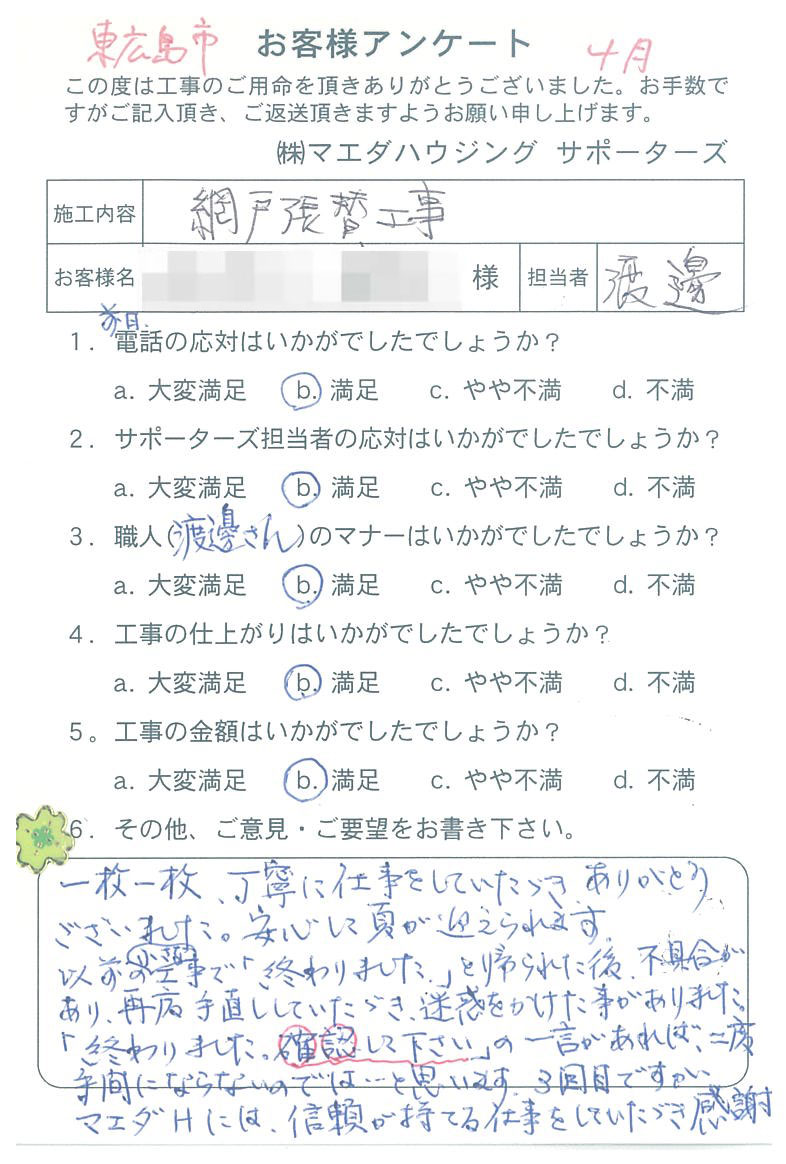 東広島市 お客様アンケート 4月
この度は工事のご用命を頂きありがとうございました。お手数で
すがご記入頂き、ご返送頂きますようお願い申し上げます。
㈱マエダハウジング サポーターズ
施工内容 網戸張替工事
お客様名 様 担当者 渡邊
前日.
1. 電話の応対はいかがでしたでしょうか？
a. 大変満足 b. 満足 c. やや不満 d. 不満
2. サポーターズ担当者の応対はいかがでしたでしょうか？
a. 大変満足 b. 満足 c. やや不満 d. 不満
3. 職人(渡邊さん)のマナーはいかがでしたでしょうか？
a. 大変満足 b. 満足 c. やや不満 d. 不満
4. 工事の仕上がりはいかがでしたでしょうか？
a. 大変満足 b. 満足 c. やや不満 d. 不満
5。工事の金額はいかがでしたでしょうか？
a. 大変満足 b. 満足 c. やや不満 d. 不満
6. その他、ご意見・ご要望をお書き下さい。
一枚一枚、丁寧に仕事をしていただき ありがとう
ございました。安心して夏が迎えられます。
以前の工事で「終わりました。」と帰られた後、不具合が
あり、再度手直ししていただき、迷惑をかけた事がありました。
「終わりました。確認して下さい」の一言があれば、二度
手間にならないのでは…と思います。3回目ですが
マエダHには、信頼が持てる仕事をしていただき感謝